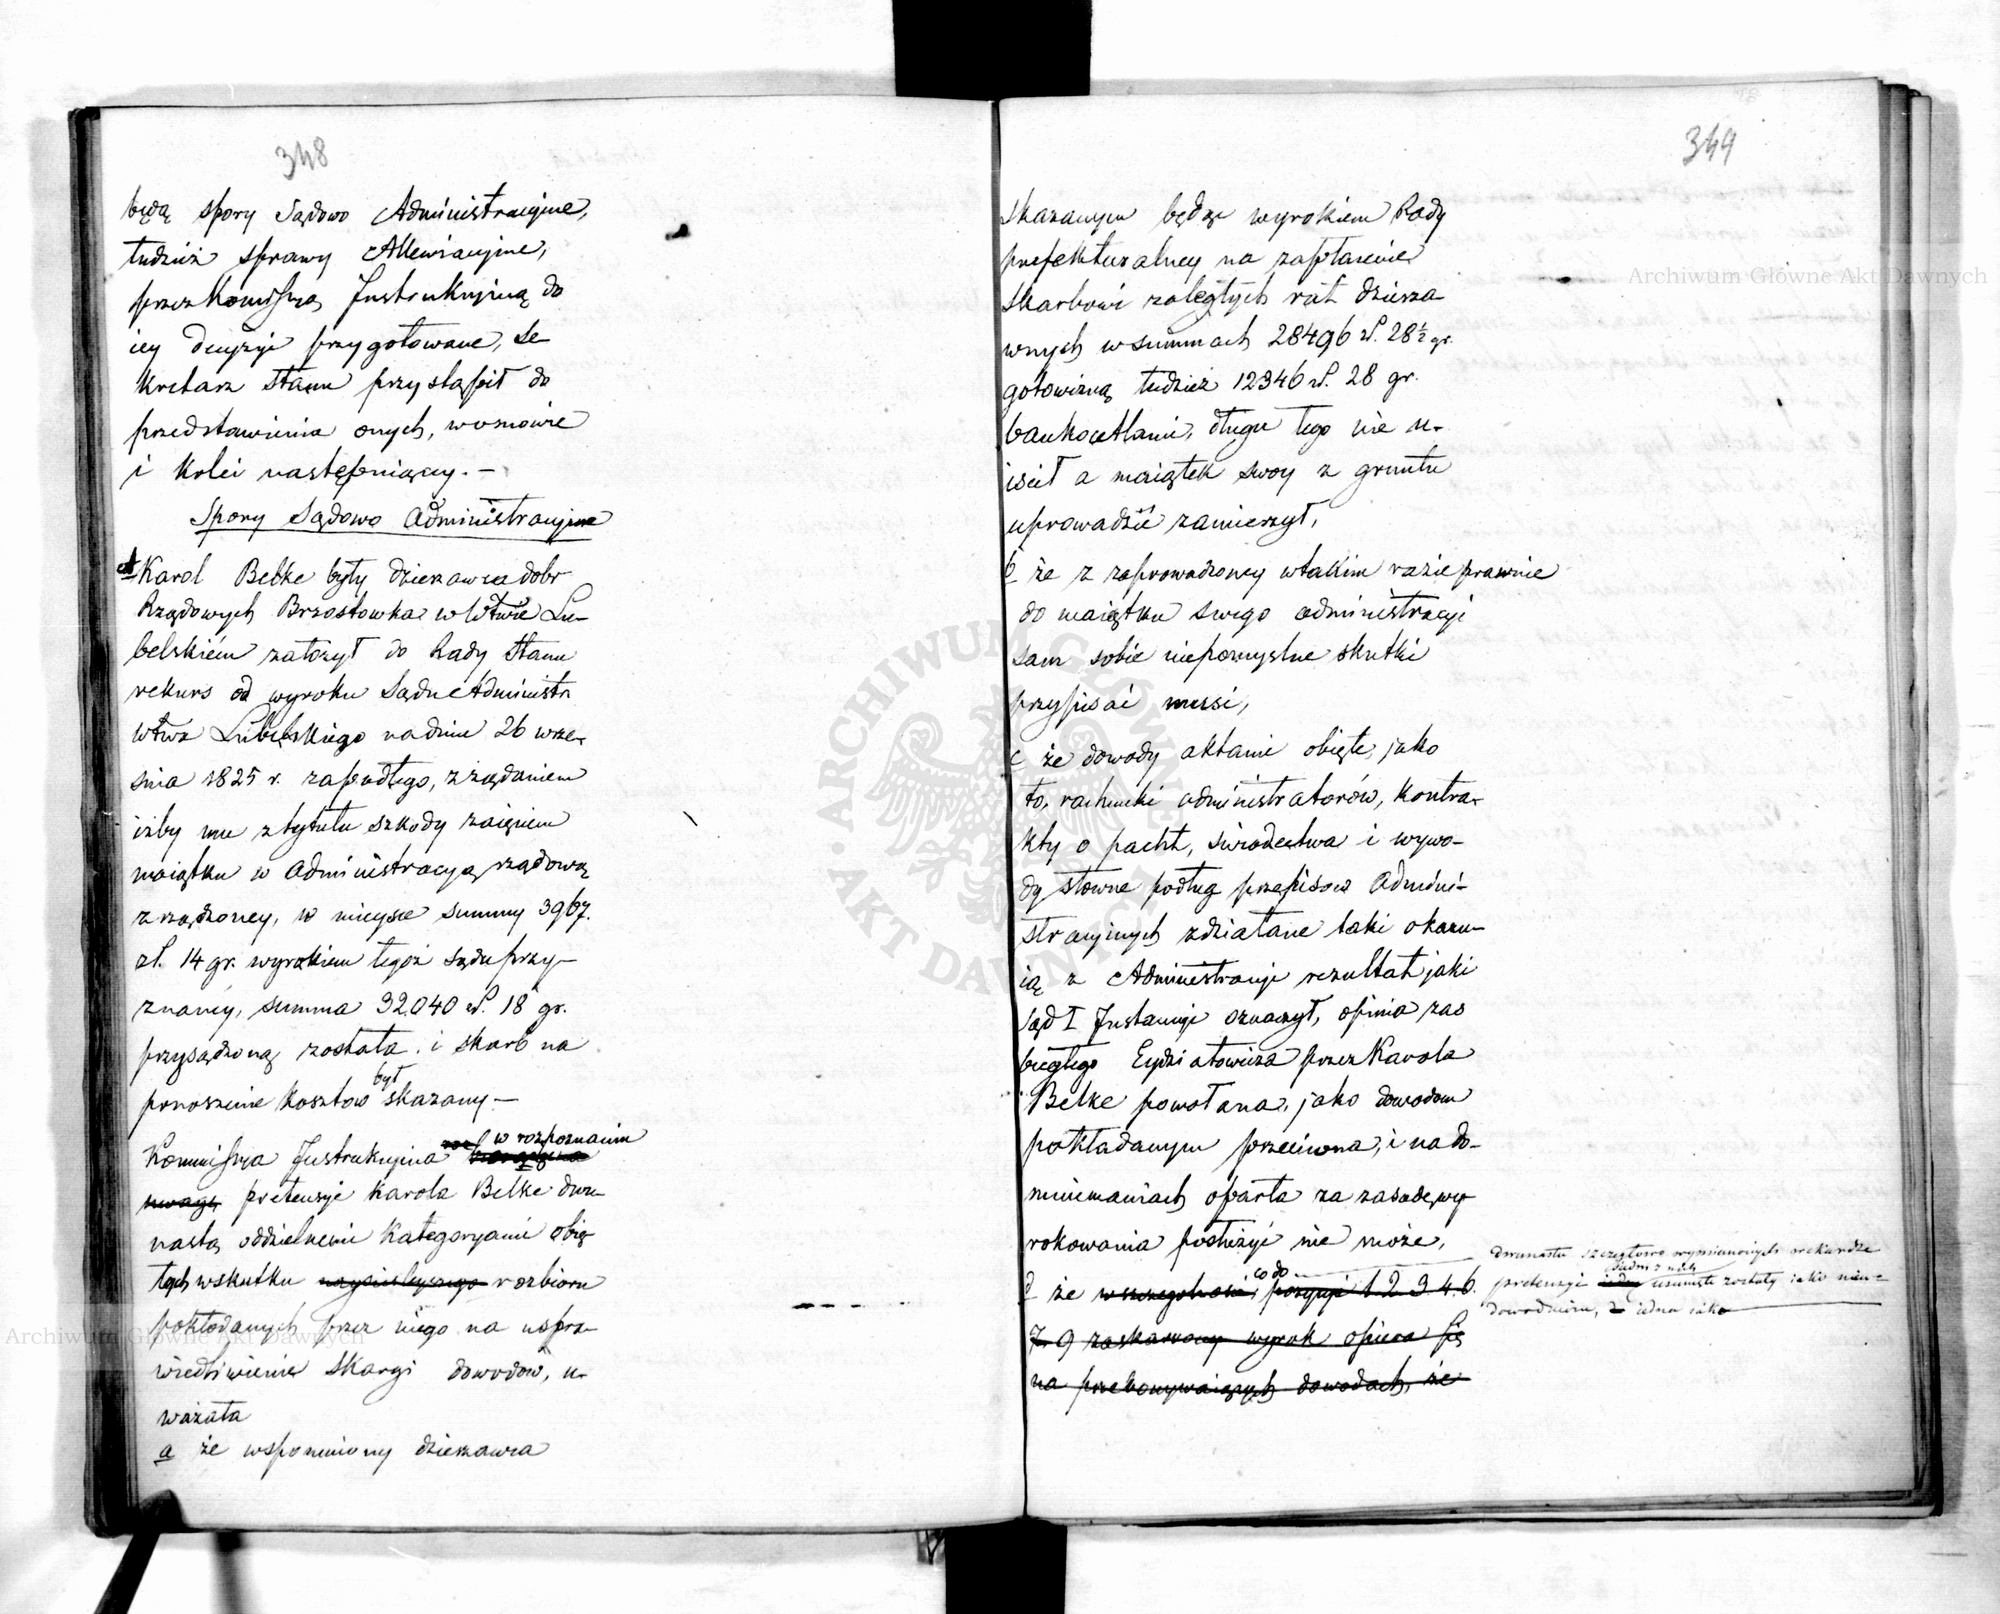 348
będą spory Sądowo Administracyjne,
tudzież sprawy Allewiacyjne,
przez Kommissyą Instrukcyjną do
iey decyzyi przygotowane, Se-
kretarz Stanu przystąpił do
przedstawienia onych, w osnowie
i kolei następuiącey. -
Spory Sądowo Administracyjne
Karol Belke były dzierzawca dobr
Rządowych Brzostowka w Wtwie Lu-
belskiém założył do Rady Stanu
rekurs od wyroku Sądu Administr.
wtwa Lubelskiego na dniu 26 wrze-
śnia 1825 r. zapadłego, z żądaniem
iżby mu z tytułu szkody zaięciem
maiątku w Administracyą rządową
zrządzoney, w mieysce summy 3967.
zł. 14 gr. wyrokiem tegoż sądu przy-
znanéy, summa 32,040 zł. 18 gr.
przysądzoną została. i skarb na
ponoszenie kosztów był skazany. -
Kommissya Instrukcyjna w rozpoznaniu
uwagę pretensye Karola Belke dwu-
nastą oddzielnemi kategoryami obię-
tych wskutku rozbioru
pokładanych przez niego na uspra-
wiedliwienie skargi dowodow, u-
ważała
a że wspomniony dzierzawca
349
skazanym będąc wyrokiem Rady
prefekturalney na zapłacenie
Skarbowi zaległych rat dzierza-
wnych w summach 28496 zł. 28½ gr.
gotowizną tudzież 12346 zł. 28 gr.
bankocetlami, długu tego nie u-
iścił a maiątek swoy z gruntu
uprowadzić zamierzył,
b że z zaprowadzoney w takim razie prawnie
do maiątku swego administracyi
sam sobie niepomyslne skutki
przypisać musi,
c że dowody aktami obięte, jako
to, rachunki administratorów, kontra-
kty o pacht, świadectwa i wywo-
dy słowne podług przepisow Admini-
stracyjnych zdziałane taki okazu-
ią z Administracyi rezultat jaki
Sąd I Instancyi oznaczył, opinia zas
biegłego Eydziatowicza przez Karola
Belke powołana, jako dowodom
pokładanym przeciwna, i na do-
mniemaniach oparta za zasadę wy-
rokowania posłużyć nie może,
d że w szczegolnosci, co do pozycyi 1. 2. 3. 4. 6.
7. 9 zaskarzony wyrok opiera się
na przekonywaiących dowodach, że
dwunastu szczegołowo wymienionych w rekursie
pretensyi żadna z nich usunięte zostały iako nieu-
dowodnione, iedna iako
Archiwum Główne Akt Dawnych
Archiwum Główne Akt Dawnych
ARCHIWUM GŁÓWNE • AKT DAWNYCH •